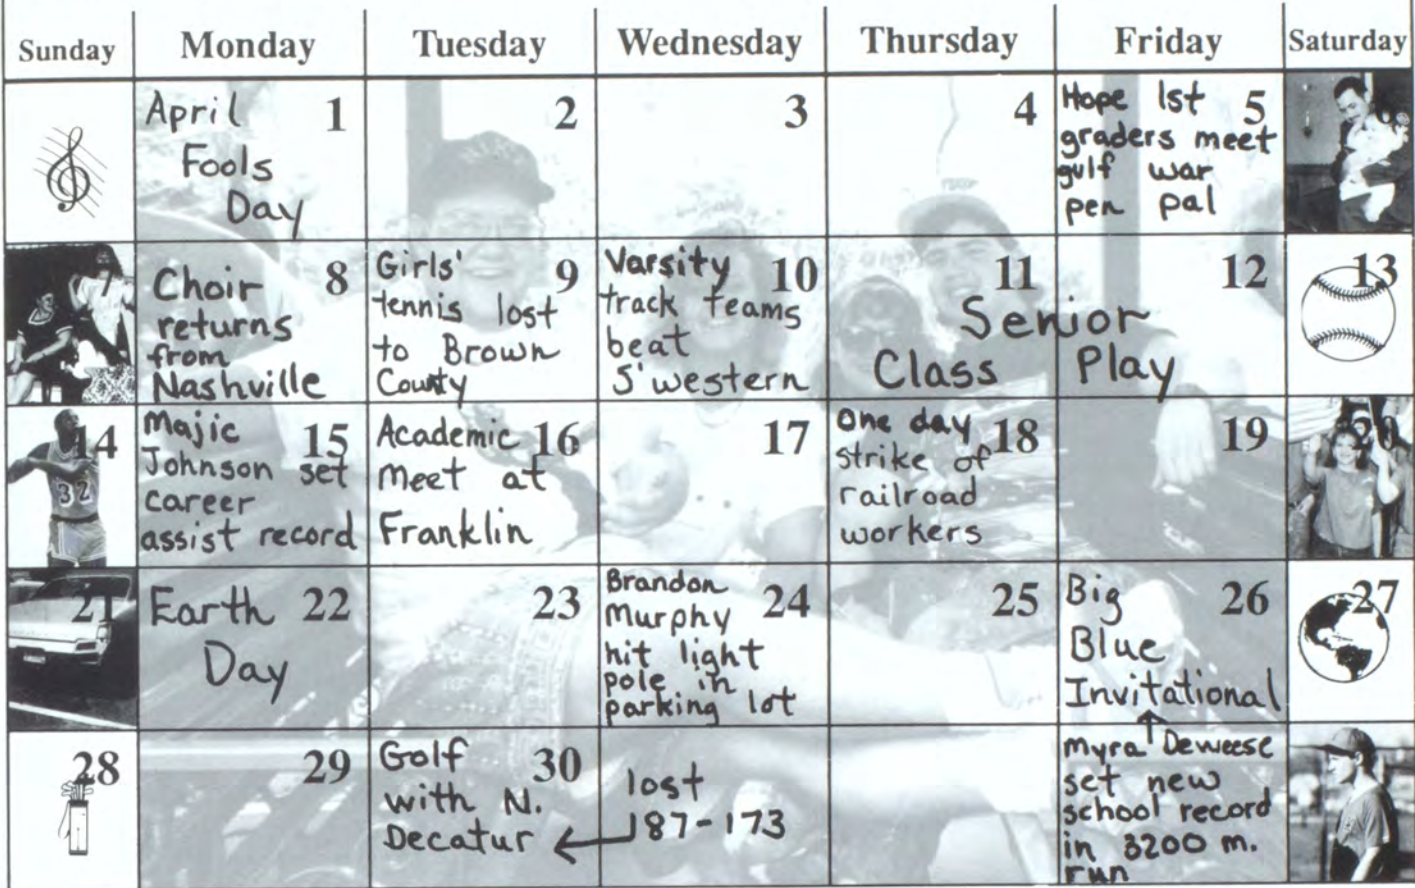 Sunday Monday Tuesday Wednesday Thursday Friday Saturday
April 1
Fools
Day
2
3
4
Hope 1st 5
graders meet
gulf war
pen pal
6
7
Choir 8
returns
from
Nashville
Girls' 9
tennis lost
to Brown
County
Varsity 10
track teams
beat
S'western
11 12
Senior
Class Play
13
14
32
Majic 15
Johnson set
career
assist record
Academic 16
meet at
Franklin
17
One day 18
strike of
railroad
workers
19
20
21
Earth 22
Day
23
Brandon 24
Murphy
hit light
pole in
parking lot
25
Big 26
Blue
Invitational
27
28
29
Golf 30
with N.
Decatur
lost
187-173
Myra Deweese
set new
school record
in 3200 m.
run